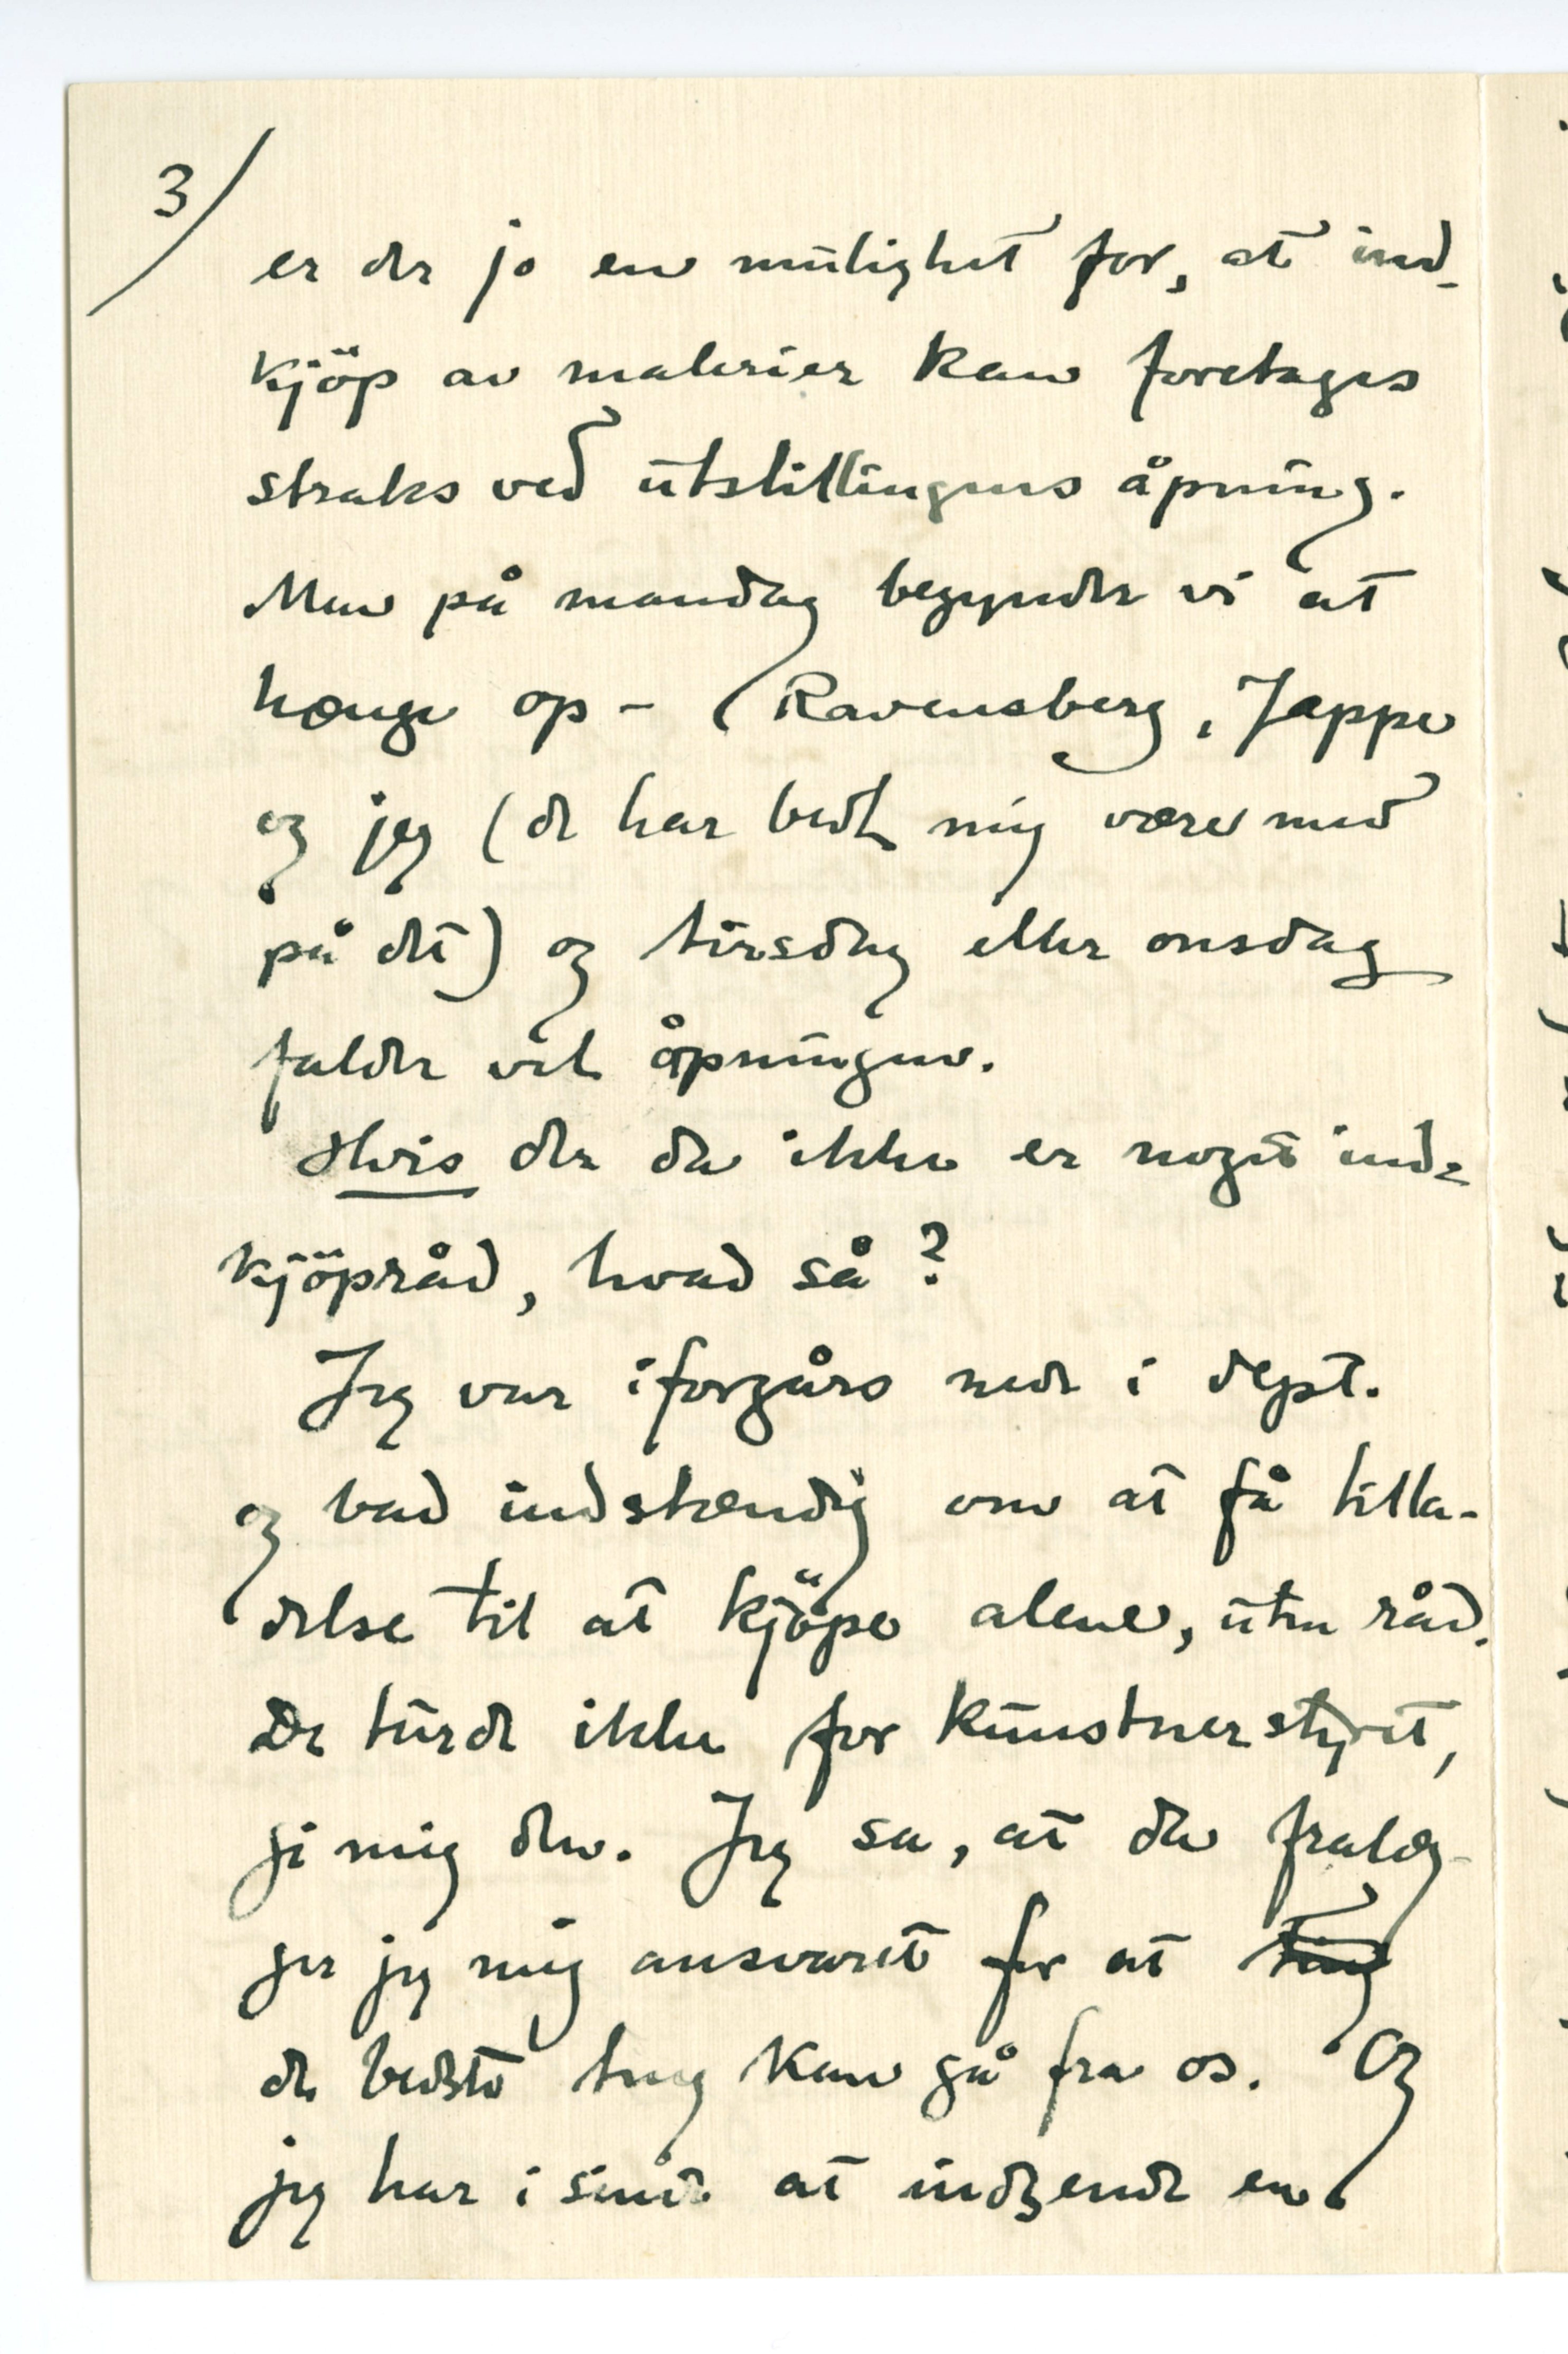 3/
er der jo en mulighet for, at ind-
kjöp av malerier kan foretages
straks ved utstillingens åpning.
Men på mandag begynder vi at
hænge op – (Ravensberg, Jappe
og jeg (de har bedt mig være med
på det) og tirsdag eller onsdag
falder vel åpningen.
Hvis der da ikke er noget ind-
kjöpråd, hvad så?
Jeg var iforgårs nede i dept.
og bad indstændig om at få tilla-
delse til at kjöpe alene, uten råd.
De turde ikke for kunstnerstyret,
gi mig den. Jeg sa, at da fralæg-
ger jeg mig ansvaret for at ting
de bedste ting kan gå fra os. Og
jeg har i sinde at indsende en